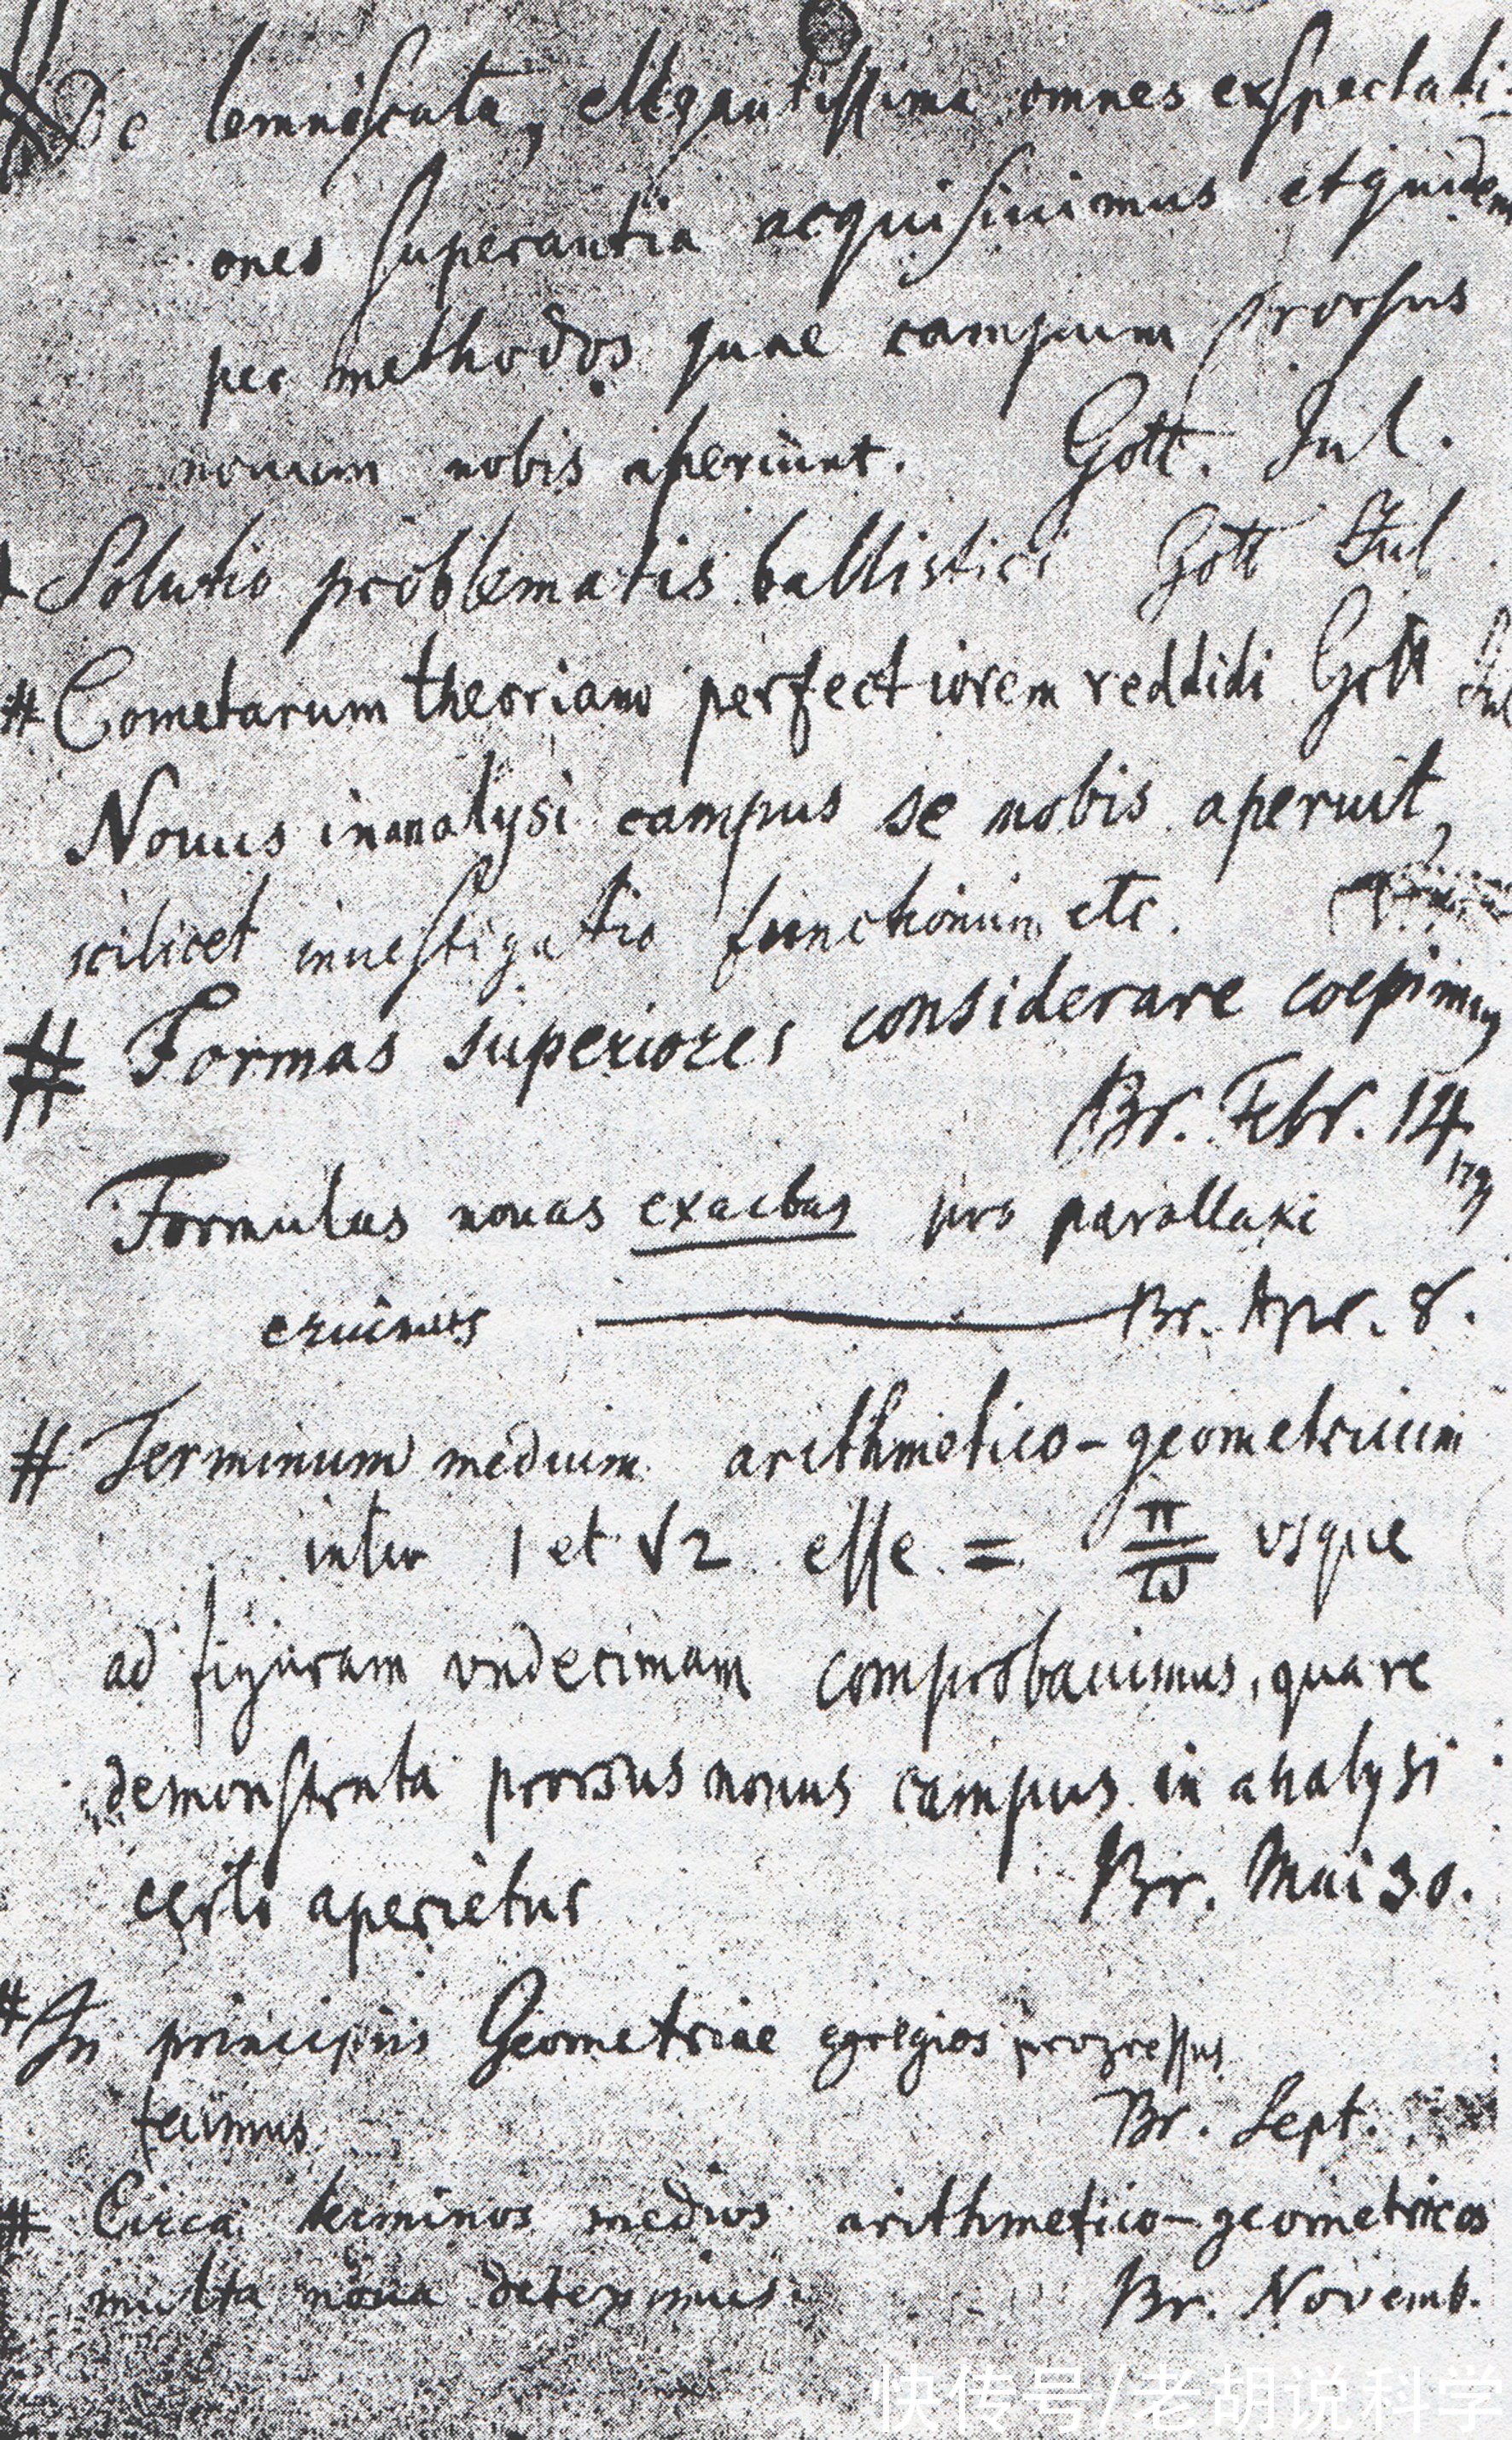 # De lemniscata, elegantissima omnes exspectati-
ones superantia acquisiuimus et quidem
per methodos quae campum prorsus
nouum nobis aperiunt. Gott. Jul.
Solutio problematis ballistici Gott Jul.
# Cometarum theoriam perfectiorem reddidi Gott Jul
Nouus in analysi campus se nobis aperuit,
scilicet inuestigatio functionum etc.
# Formas superiores considerare coepimus
Br. Febr. 14
Formulas nouas exactas pro parallaxi
eruimus Br. Apr. 8.
# Terminum medium arithmetico-geometricum
inter 1 et √2 esse = π/ϖ usque
ad figuram vndecimam comprobauimus, quare
demonstrata prorsus nouus campus in analysi
certo aperietur Br. Mai 30.
# In principiis Geometriae egregios progressus
fecimus Br. Sept.
# Circa terminos medios arithmetico-geometricos
multa noua deteximus. Br. Novemb.
快传号/老胡说科学